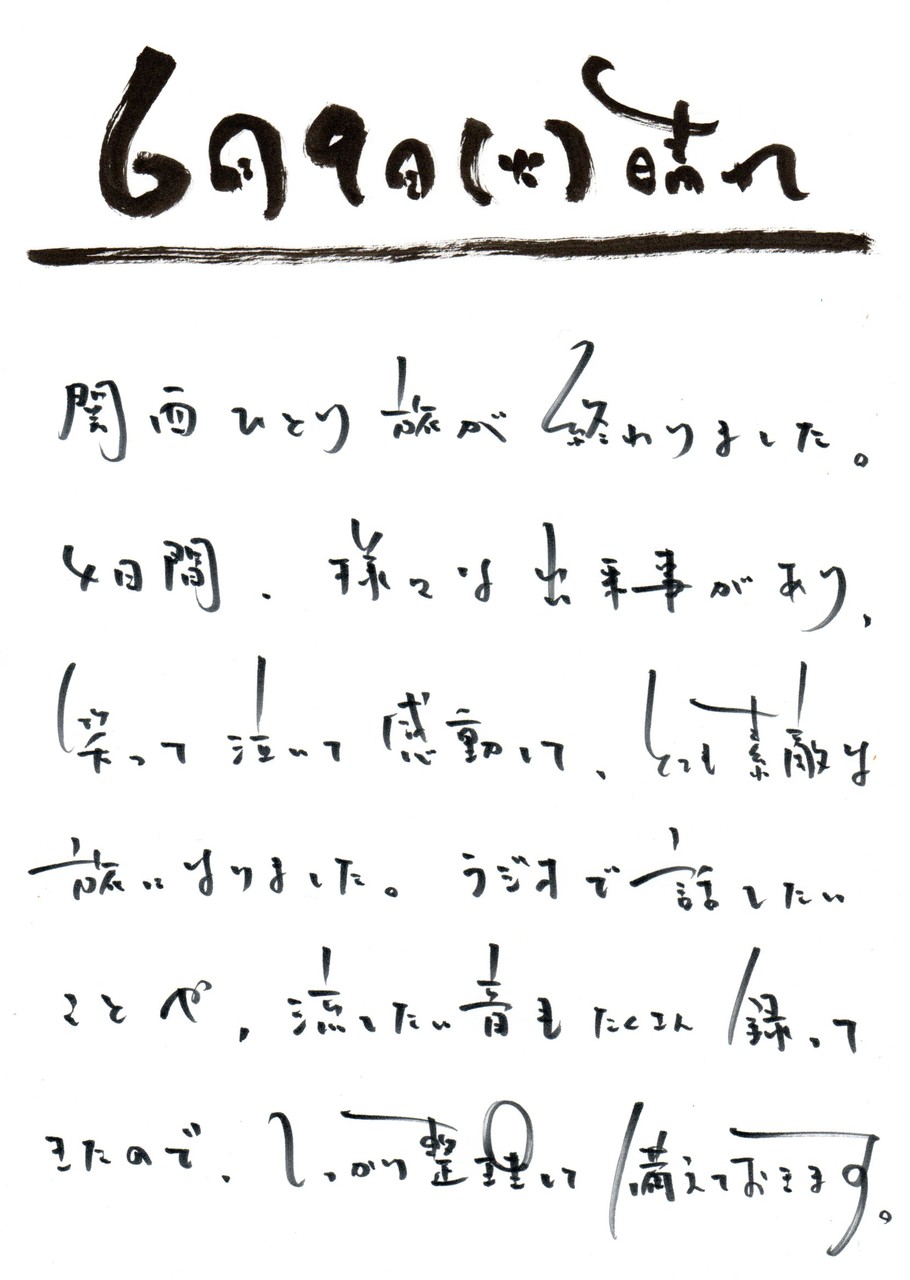 6月9日(火)晴れ
関西ひとり旅が終わりました。
4日間、様々な出来事があり、
笑って泣いて感動して、とても素敵な
旅になりました。ラジオで話したい
ことや、流したい音もたくさん録って
きたので、しっかり整理して備えておきます。